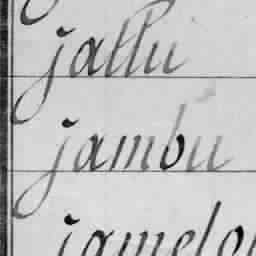 jallu
jambu
jamelo